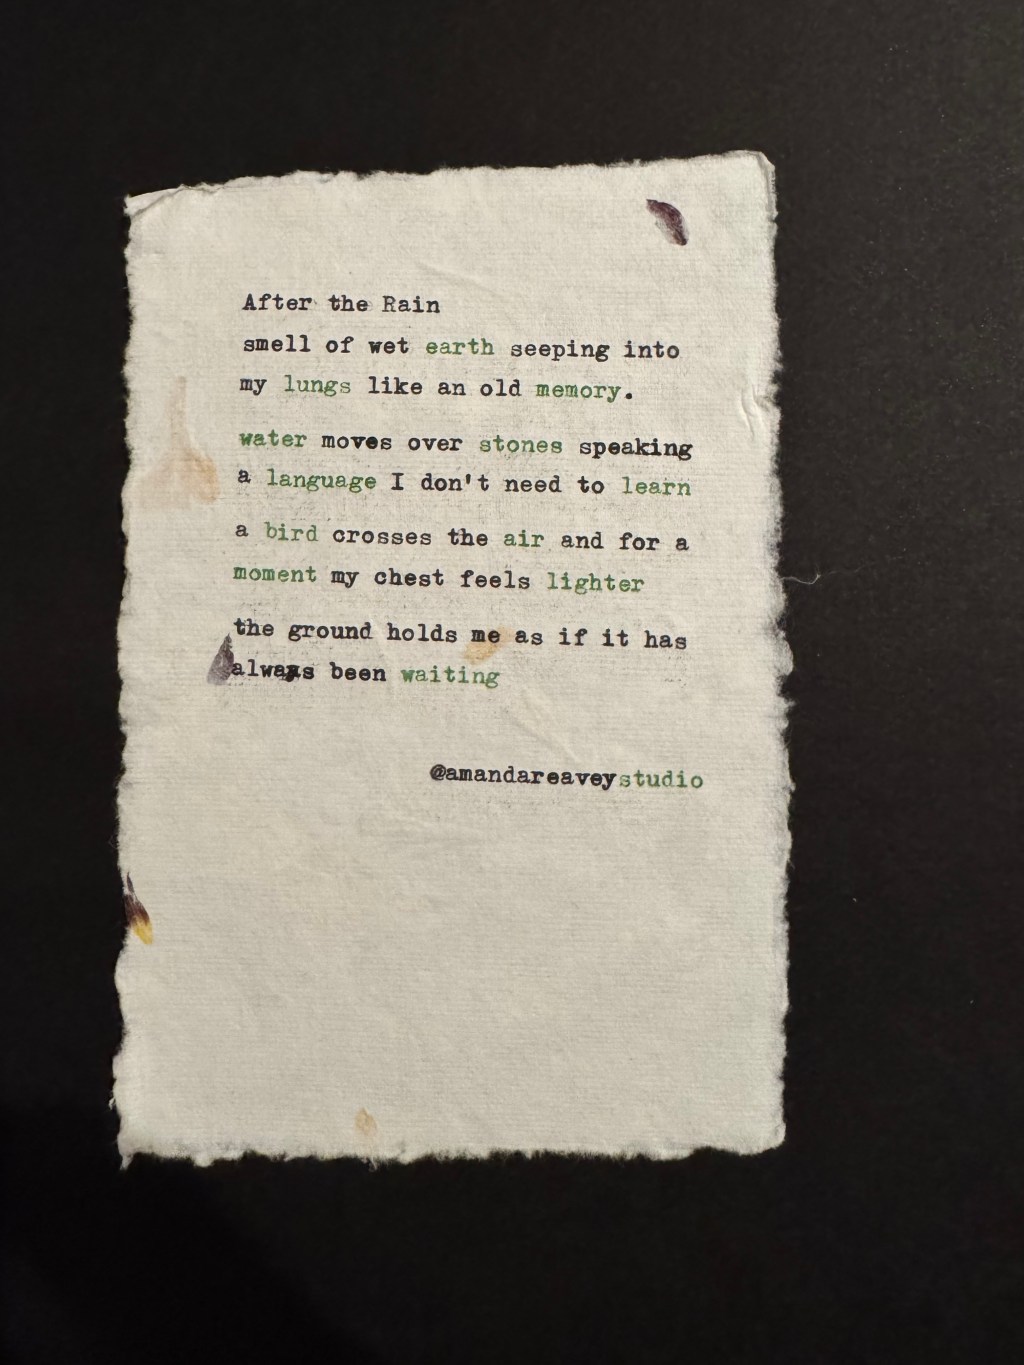 After the Rain
smell of wet earth seeping into
my lungs like an old memory.
water moves over stones speaking
a language I don't need to learn
a bird crosses the air and for a
moment my chest feels lighter
the ground holds me as if it has
always been waiting
@amandareaveystudio